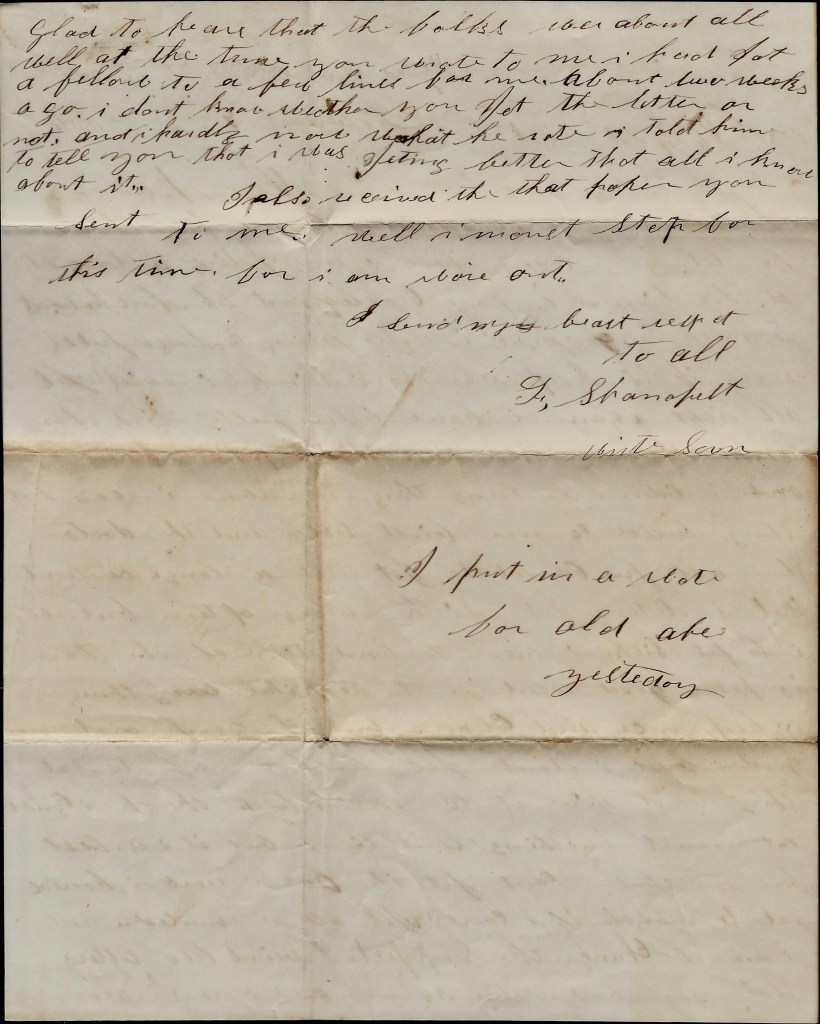 Glad to heare that the folks wer about all
well at the time you wrote to me i had Got
a fellow to a few lines for me. About two weeks
a go. i dont know wether you Got the letter or
not. and i hardly now what he rote i told him
to tell you that i was Geting better that all i know
about it..
I also received the that paper you
sent to me. well i moust Stop for
this time. for i am wore out..
I send my beast respct
to all
F, Shanafelt
write Soon
I put in a vote
for old abe
yesteday